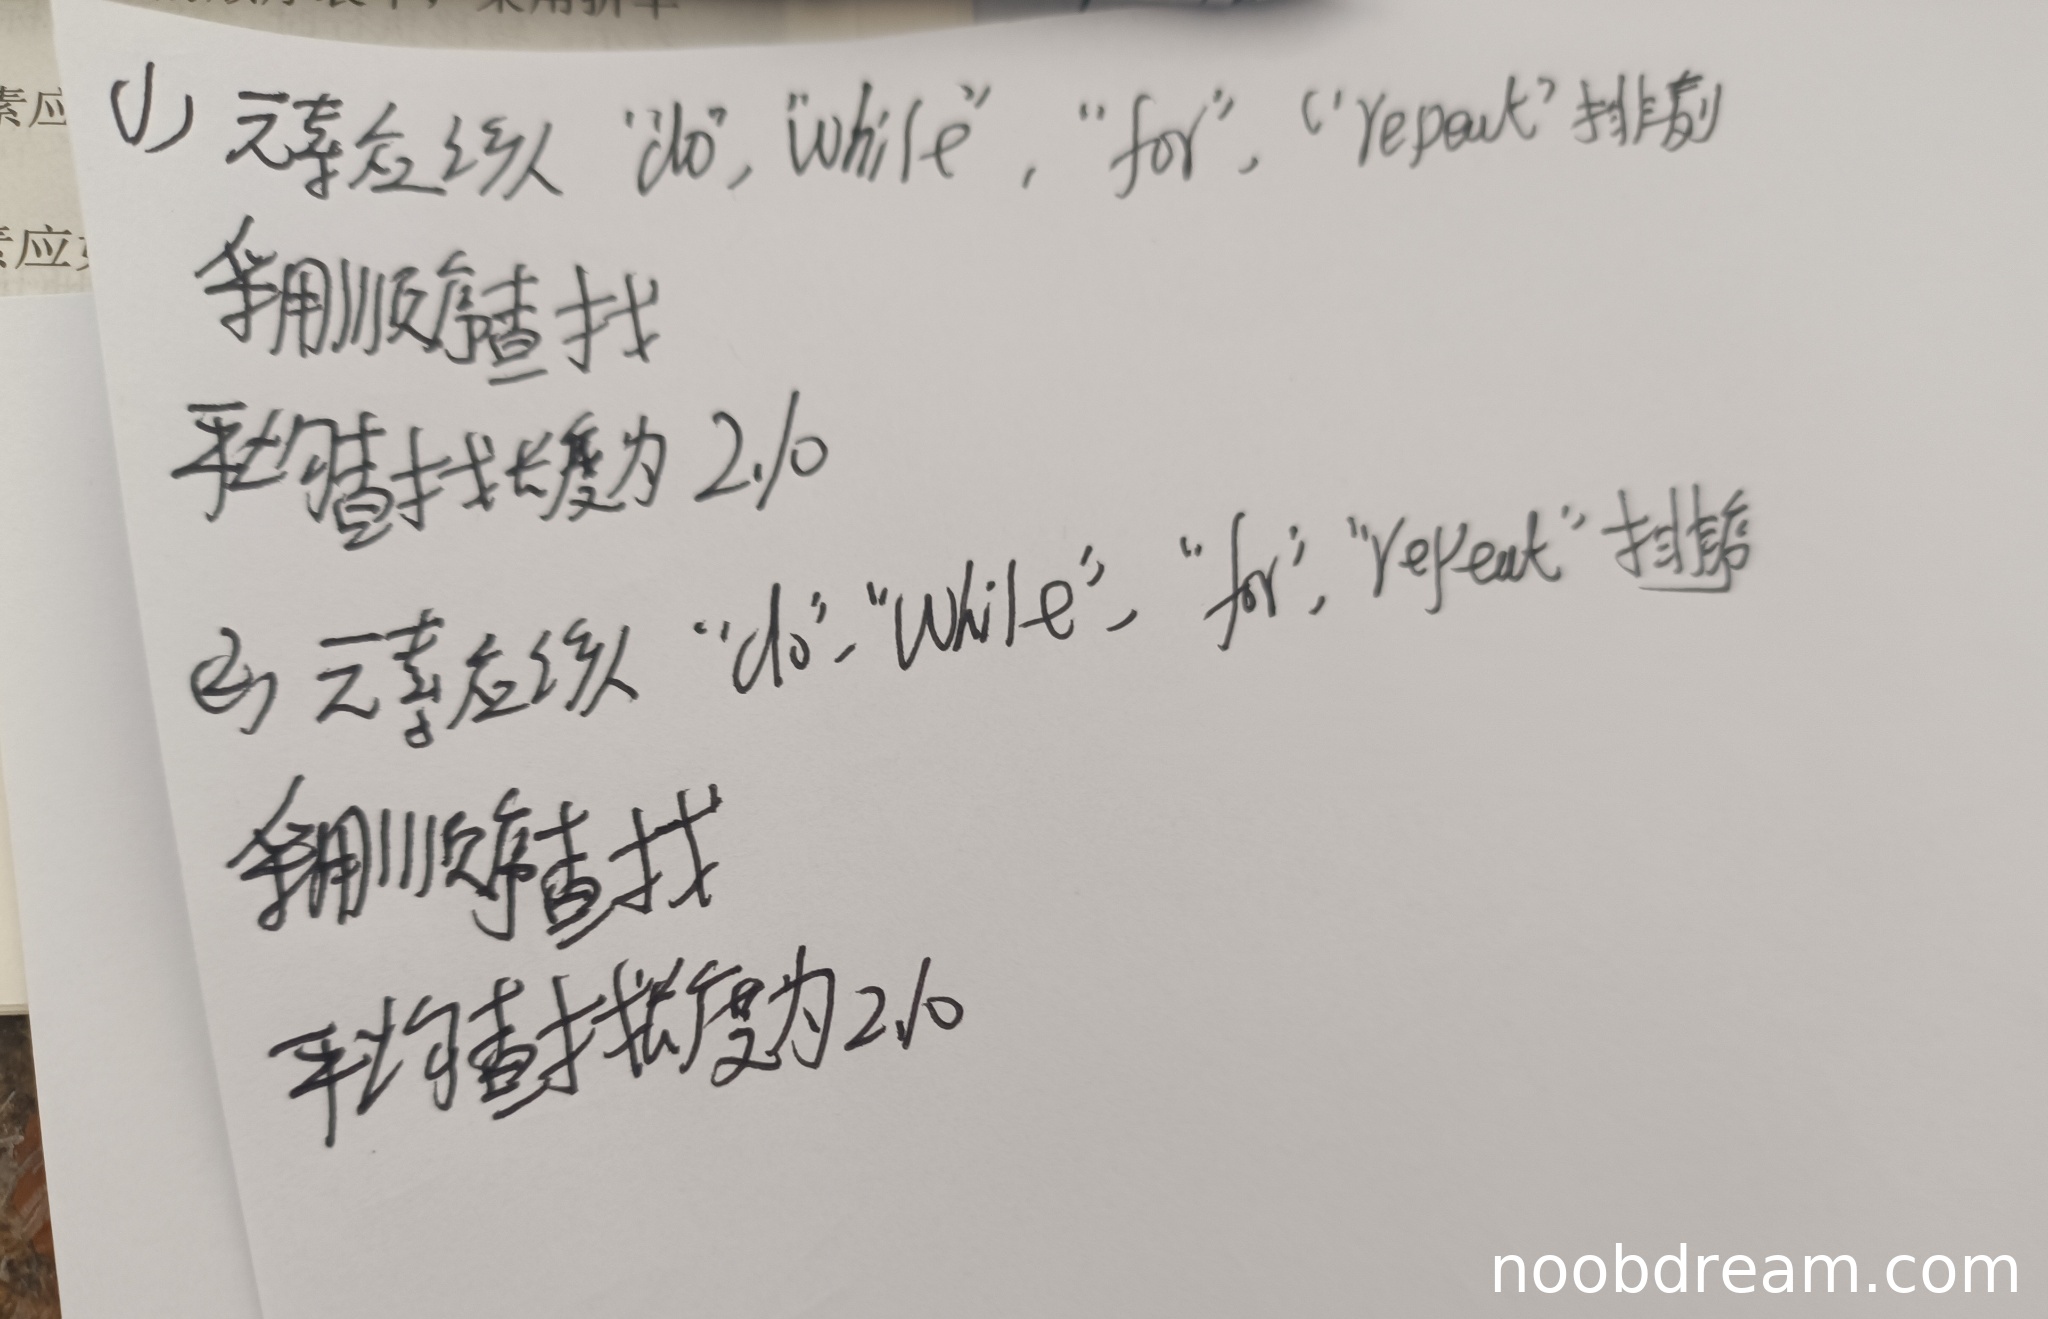 素应
素应
(1) 元素应该以 "do", "while", "for", "repeat" 排列
采用顺序查找
平均查找长度为 2.10
(2) 元素应该以 "do", "while", "for", "repeat" 排序
采用顺序查找
平均查找长度为 2.10
noobdream.com